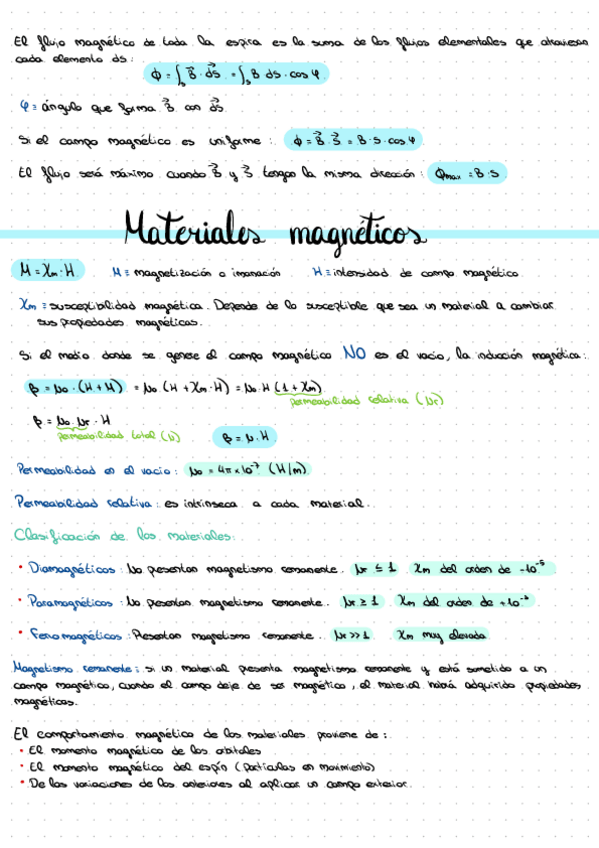 El flujo magnético de toda la espira es la suma de los flujos elementales que atraviesan
cada elemento ds:
ϕ = ∫ₛ B⃗ · ds⃗ = ∫ₛ B ds · cos φ
φ = ángulo que forma B⃗ con ds⃗
Si el campo magnético es uniforme: ϕ = B⃗ · S⃗ = B · S · cos φ
El flujo será máximo cuando B⃗ y S⃗ tengan la misma dirección: ϕmax = B · S
Materiales magnéticos
M = χm · H M ≡ magnetización o imanación H ≡ intensidad de campo magnético
χm ≡ susceptibilidad magnética. Depende de lo susceptible que sea un material a cambiar
sus propiedades magnéticas.
Si el medio donde se genere el campo magnético NO es el vacío, la inducción magnética:
B = μ₀ · (H + M) = μ₀ (H + χm · H) = μ₀ · H (1 + χm)
permeabilidad relativa (μr)
B = μ₀ · μr · H
permeabilidad total (μ) B = μ · H
Permeabilidad en el vacío: μ₀ = 4π × 10⁻⁷ (H/m)
Permeabilidad relativa: es intrínseca a cada material.
Clasificación de los materiales:
• Diamagnéticos: No presentan magnetismo remanente. μr ≤ 1 χm del orden de -10⁻⁵
• Paramagnéticos: No presentan magnetismo remanente. μr ≥ 1 χm del orden de
• Ferromagnéticos: Presentan magnetismo remanente. μr >> 1 χm muy elevada
Magnetismo remanente: si un material presenta magnetismo remanente y está sometido a un
campo magnético, cuando el campo deje de ser magnético, el material habrá adquirido propiedades
magnéticas.
El comportamiento magnético de los materiales proviene de:
• El momento magnético de los orbitales
• El momento magnético del espín (partículas en movimiento)
• De las variaciones de los anteriores al aplicar un campo exterior.